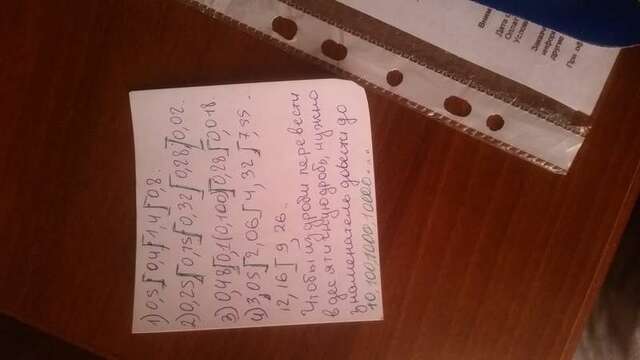 1) 0,5 0,4 1,4 0,8.
2) 0,25 0,75 0,32 0,28 0,02.
3) 0,48 0,1(0,100) 0,28 0,018.
4) 3,05 2,06 4,32 7,55.
12,16 9,26.
Чтобы из дроби перевести
в десятичную дробь, нужно
знаменатель довести до
10, 100, 1000, 10000....
Вним
Дата о
Оплат
Услов
Заказч
информ
другие
При об